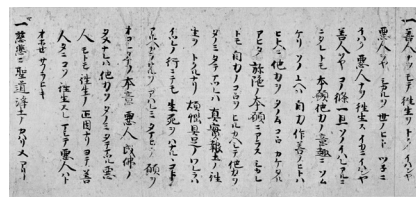 一善人ナヲモテ往生ヲトク イハンヤ
悪人ヲヤ シカルヲ世ノヒトツネニ
イハク悪人ナヲ往生スイカニイハンヤ
善人ヲヤ コノ條一旦ソノイハレアルニ
ニタレトモ本願他力ノ意趣ニソム
ケリ ソノユヘハ自力作善ノヒトハ
ヒトヘニ他力ヲタノムコヽロカケタル
アヒタ弥陀ノ本願ニアラス シカレ
トモ自力ノコヽロヲヒルカヘシテ他力ヲ
タノミタテマツレハ真實報土ノ往
生ヲトクルナリ 煩悩具足ノワレラハ
イツレノ行ニテモ生死ヲハナルヽコト
アルヘカラサルヲアハレミタマヒテ願ヲ
オコシタマフ本意悪人成佛ノ
タメナレハ他力ヲタノミタテマツル悪
人モトモ往生ノ正因ナリ ヨテ善
人タニコソ往生スレ マシテ悪人ハト
オホセサフラヒキ
一慈悲ニ聖道浄土ノカハリメアリ